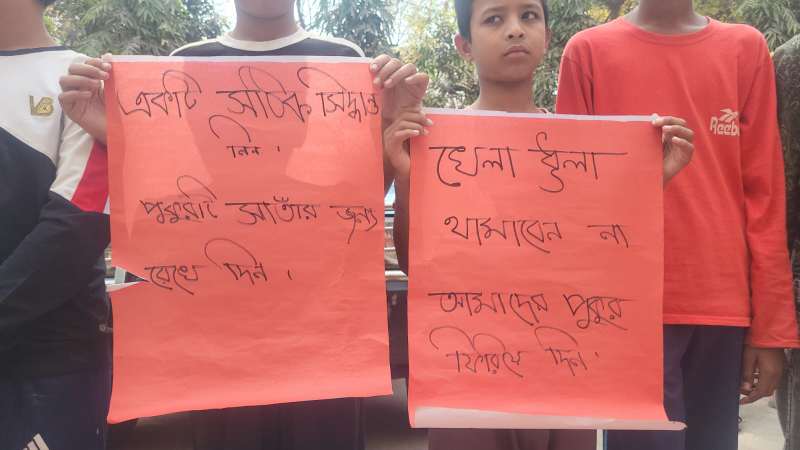 একটি সঠিক সিদ্ধান্ত
নিন।
পুকুরটি সাতাঁর জন্য
রেখে দিন।
খেলা ধুলা
থামাবেন না
আমাদের পুকুর
ফিরিয়ে দিন।
Reebok
VB